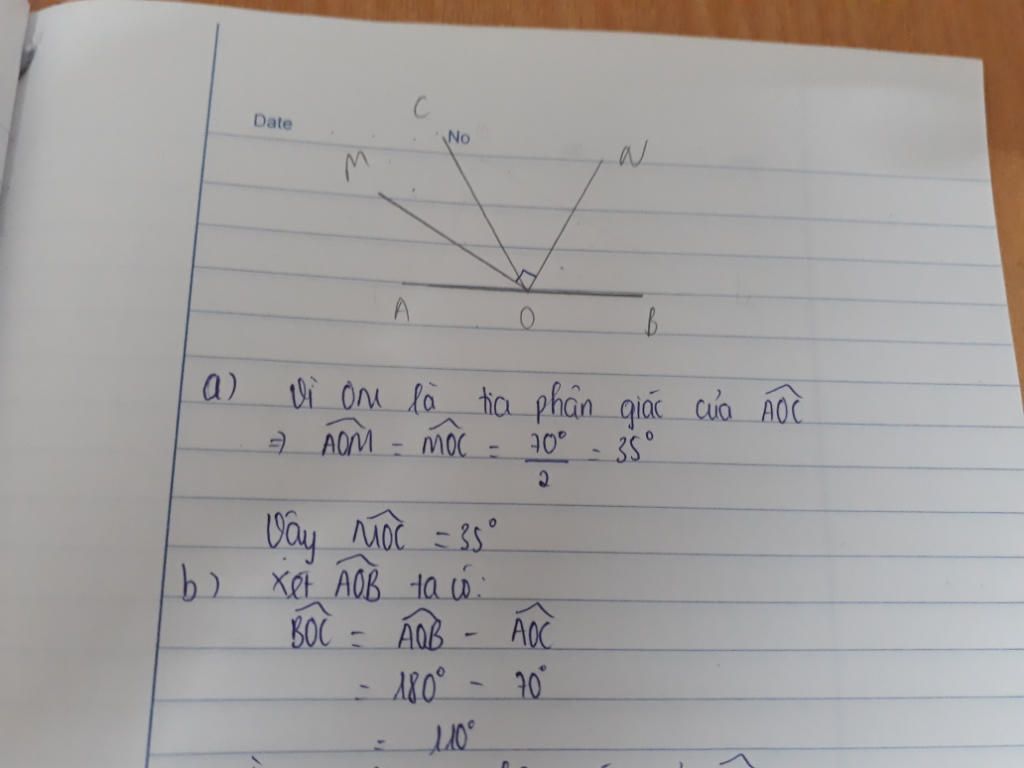 Date
No
C
M
N
A
O
B
a) Vì OM là tia phân giác của $\widehat{AOC}$
⇒ $\widehat{AOM}$ = $\widehat{MOC}$ = $\frac{70°}{2}$ = 35°
Vây $\widehat{MOC}$ = 35°
b) Xét $\widehat{AOB}$ ta có:
$\widehat{BOC}$ = $\widehat{AOB}$ - $\widehat{AOC}$
= 180° - 70°
= 110°